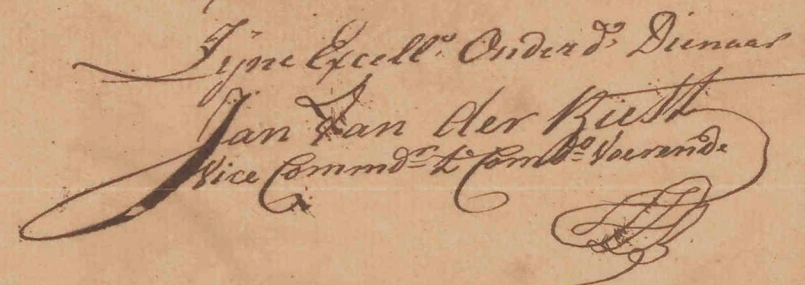 Zijne Excell.s Onderd.s Dienaar
Jan Van der
Vice Commdr: & Comdo: Voerende